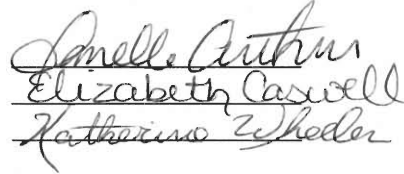 Janelle Arthur
Elizabeth Caswell
Katherine Wheeler